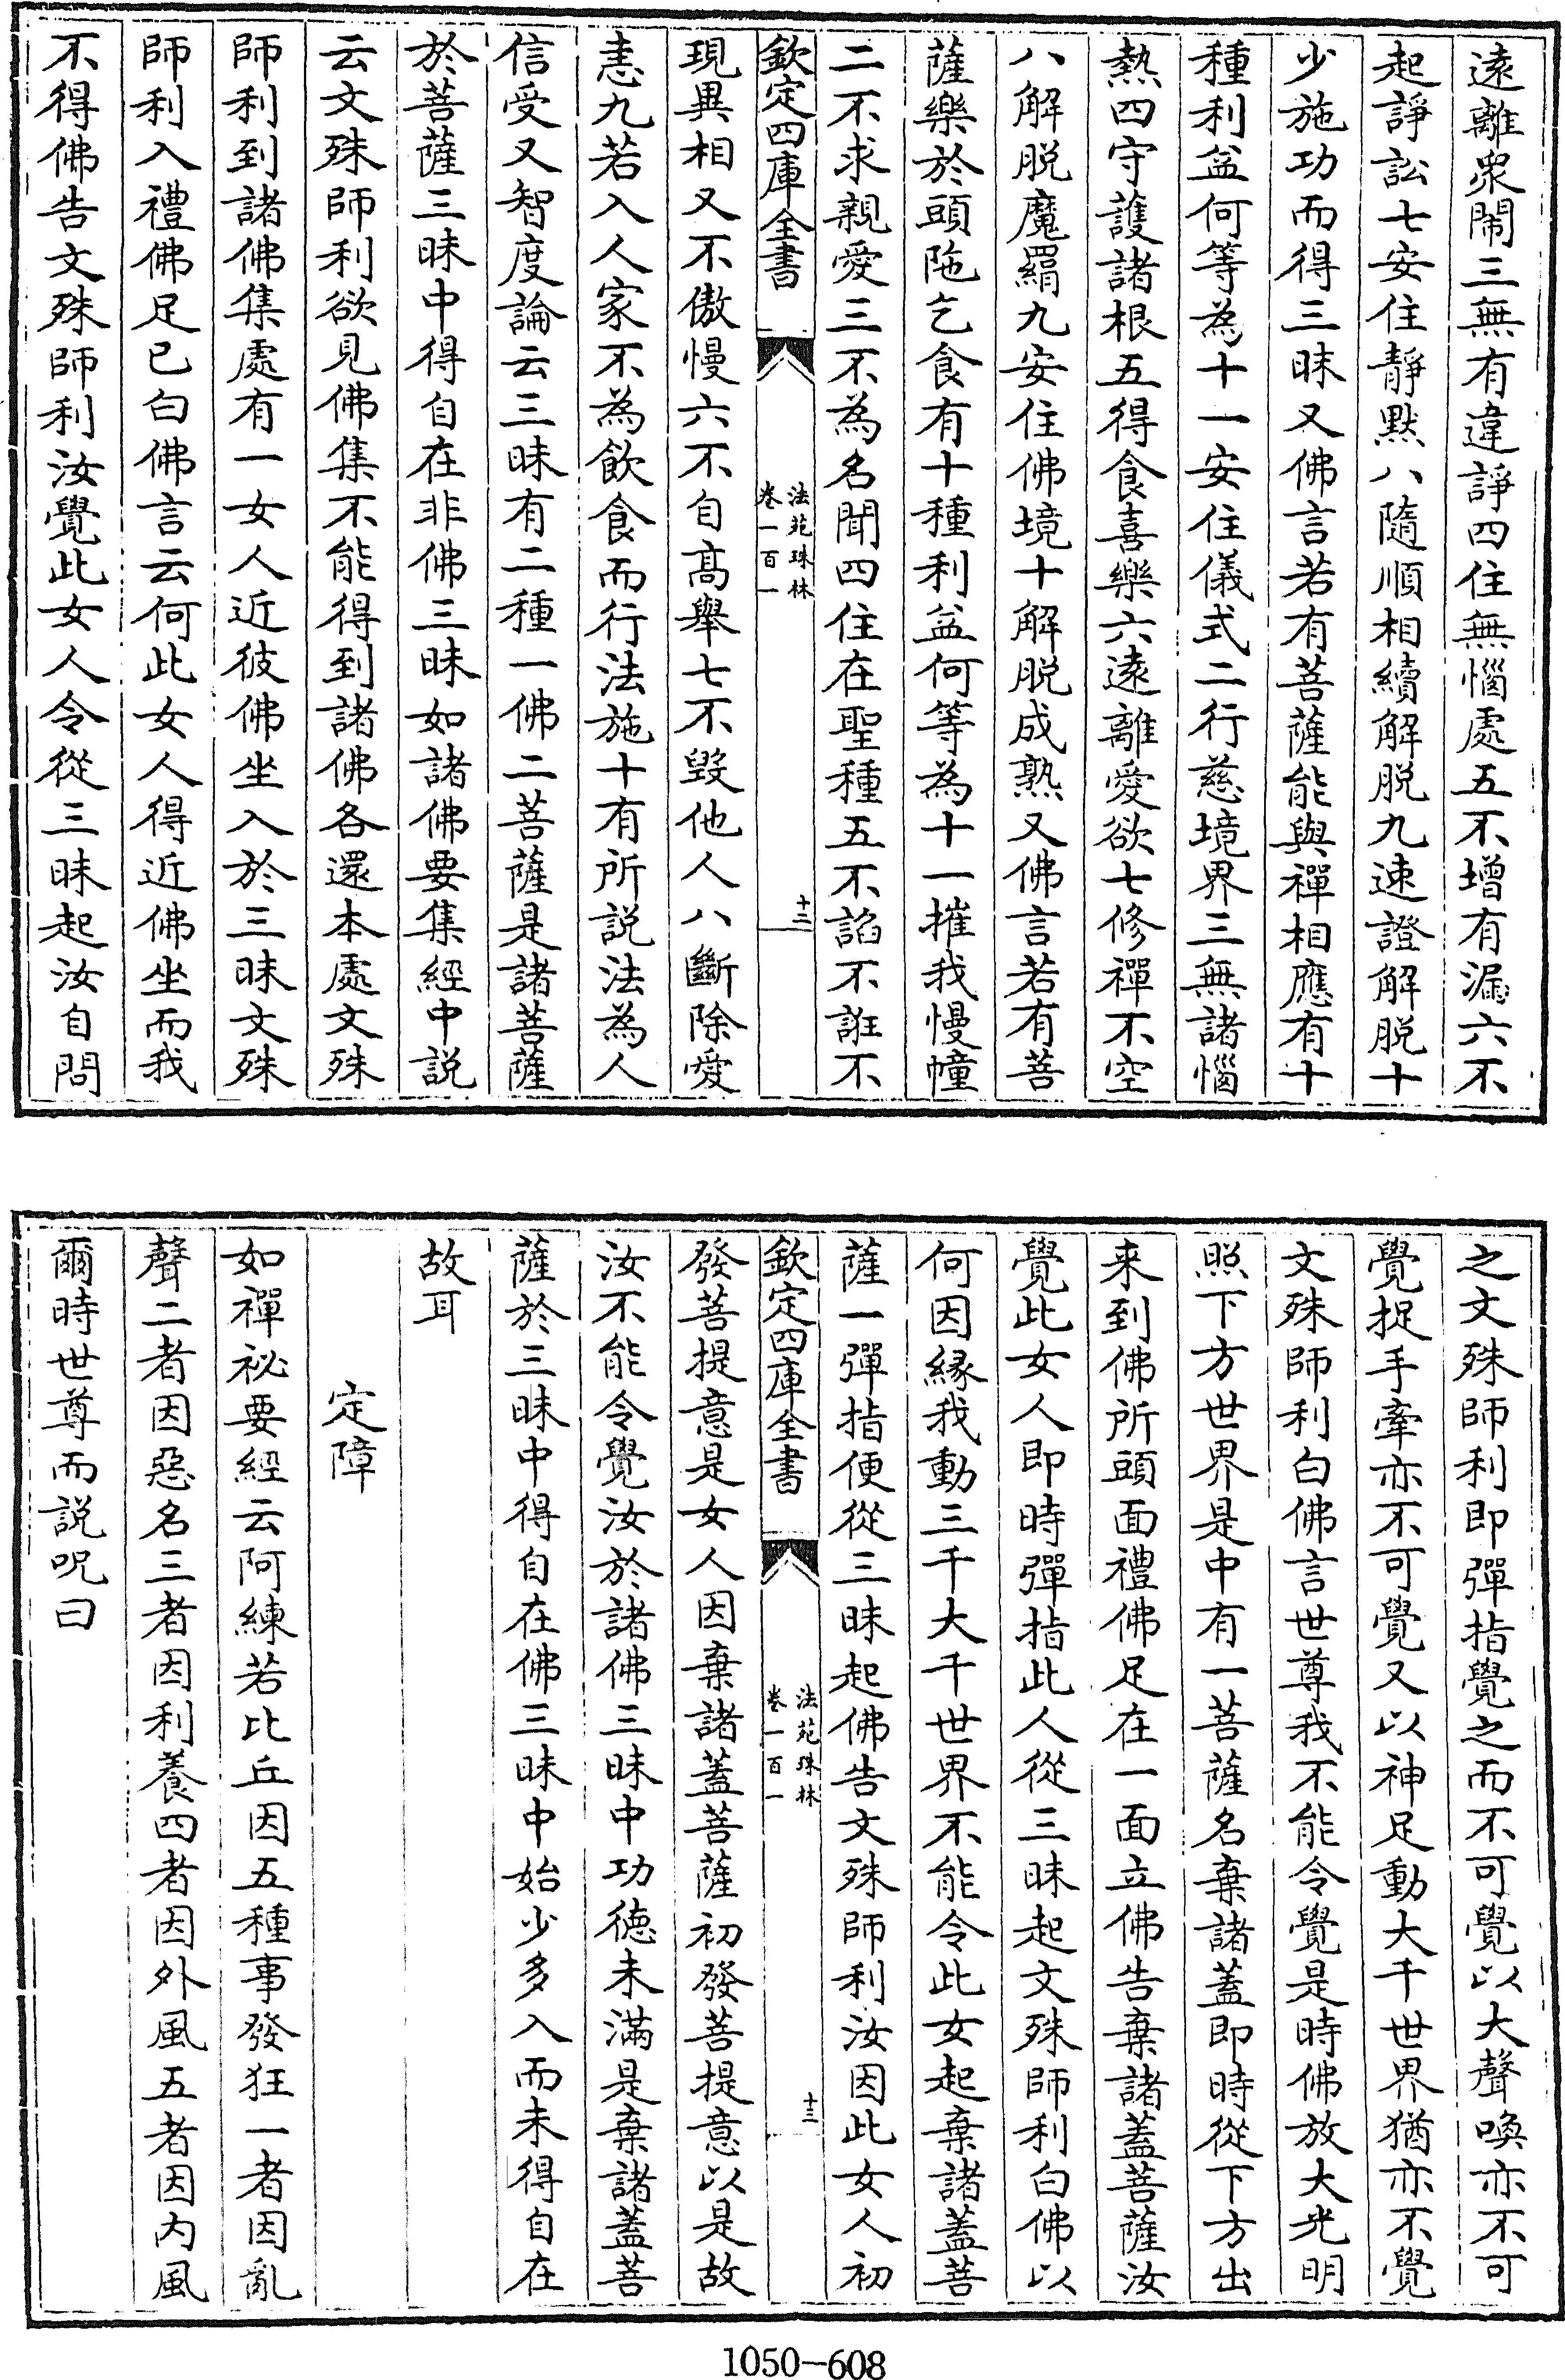 遠離衆閙三無有違諍四住無惱處五不增有漏六不
起諍訟七安住靜默八隨順相續解脱九速證解脱十
少施功而得三昧又佛言若有菩薩能與禪相應有十
種利益何等為十一安住儀式二行慈境界三無諸惱
熱四守護諸根五得食喜樂六遠離愛欲七修禪不空
八解脱魔羂九安住佛境十解脱成熟又佛言若有菩
薩樂於頭陁乞食有十種利益何等為十一摧我慢幢
二不求親愛三不為名聞四住在聖種五不諂不誑不
欽定四庫全書
法苑珠林
卷一百一
十二
現異相又不傲慢六不自髙舉七不毀他人八斷除愛
恚九若入人家不為飲食而行法施十有所説法為人
信受又智度論云三昧有二種一佛二菩薩是諸菩薩
於菩薩三昧中得自在非佛三昧如諸佛要集經中説
云文殊師利欲見佛集不能得到諸佛各還本處文殊
師利到諸佛集處有一女人近彼佛坐入於三昧文殊
師利入禮佛足已白佛言云何此女人得近佛坐而我
不得佛告文殊師利汝覺此女人令從三昧起汝自問
之文殊師利即彈指覺之而不可覺以大聲喚亦不可
覺捉手牽亦不可覺又以神足動大千世界猶亦不覺
文殊師利白佛言世尊我不能令覺是時佛放大光明
照下方世界是中有一菩薩名棄諸蓋即時從下方出
来到佛所頭面禮佛足在一面立佛告棄諸蓋菩薩汝
覺此女人即時彈指此人從三昧起文殊師利白佛以
何因縁我動三千大千世界不能令此女起棄諸蓋菩
薩一彈指便從三昧起佛告文殊師利汝因此女人初
欽定四庫全書
法苑珠林
卷一百一
十三
發菩提意是女人因棄諸蓋菩薩初發菩提意以是故
汝不能令覺汝於諸佛三昧中功徳未滿是棄諸蓋菩
薩於三昧中得自在佛三昧中始少多入而未得自在
故耳
定障
如禪祕要經云阿練若比丘因五種事發狂一者因亂
聲二者因惡名三者因利養四者因外風五者因内風
爾時世尊而説呪曰
1050-608